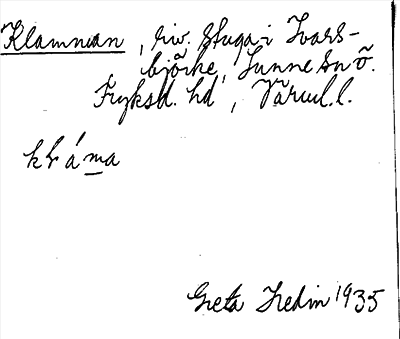 Klamman, riv. stuga i Ivars-
björke, Sunne sn ö.
Fryksd. hd, Värml. l.
klámа
Greta Hedin 1935